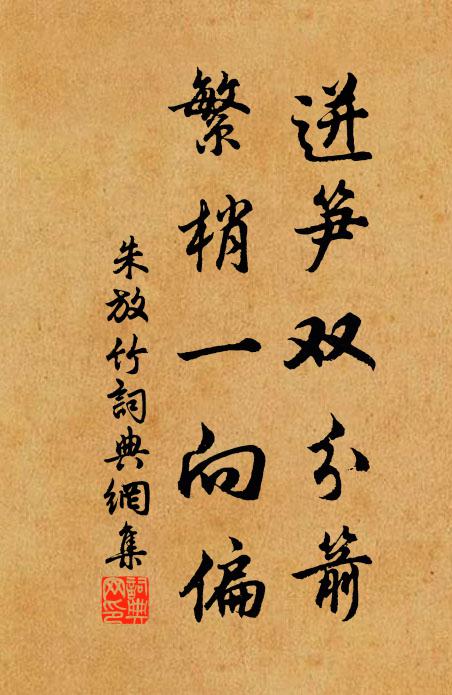 迸笋双分箭
繁梢一向偏
朱放竹詞典網集
詞典网印